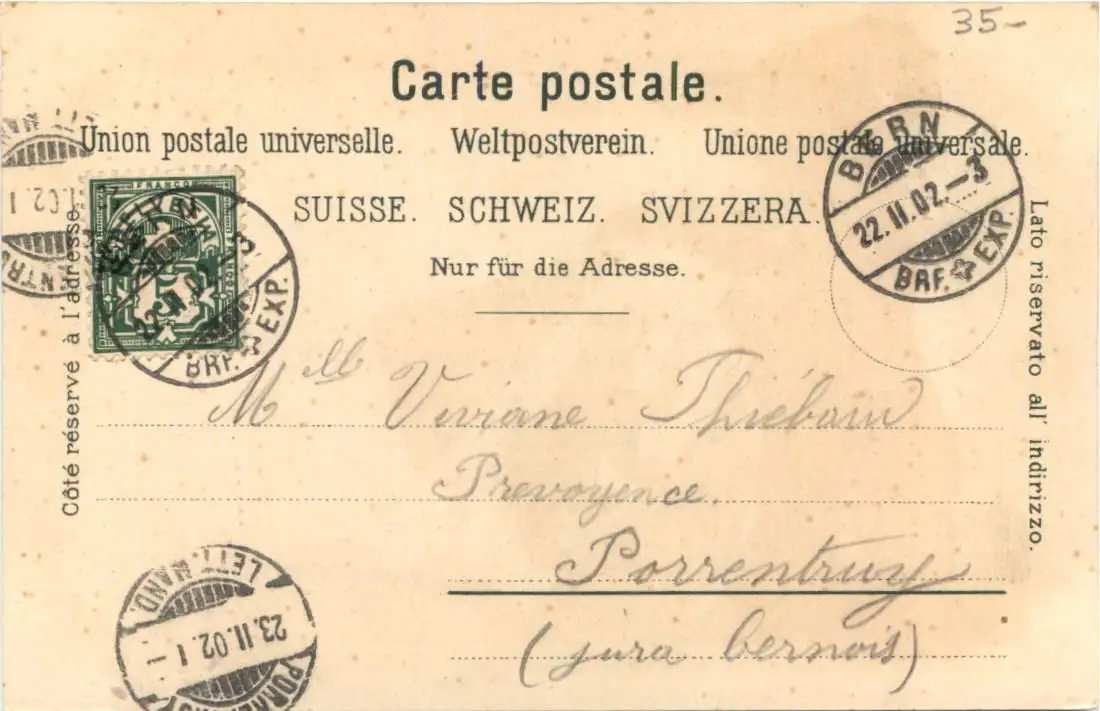 35-
Carte postale.
Union postale universelle. Weltpostverein. Unione postale universale.
SUISSE. SCHWEIZ. SVIZZERA.
Nur für die Adresse.
Côté réservé à l'adresse.
Lato riservato all' indirizzo.
FRANCO
BERN
22.II.02.-3
BRF. EXP.
22.II.02.-3
BRF. EXP.
Mlle Viviane Thiébaud
Prevoyence.
Porrentruy
(jura bernois)
LETT. MAND.
23.II.02.1-
PORRENTRUY